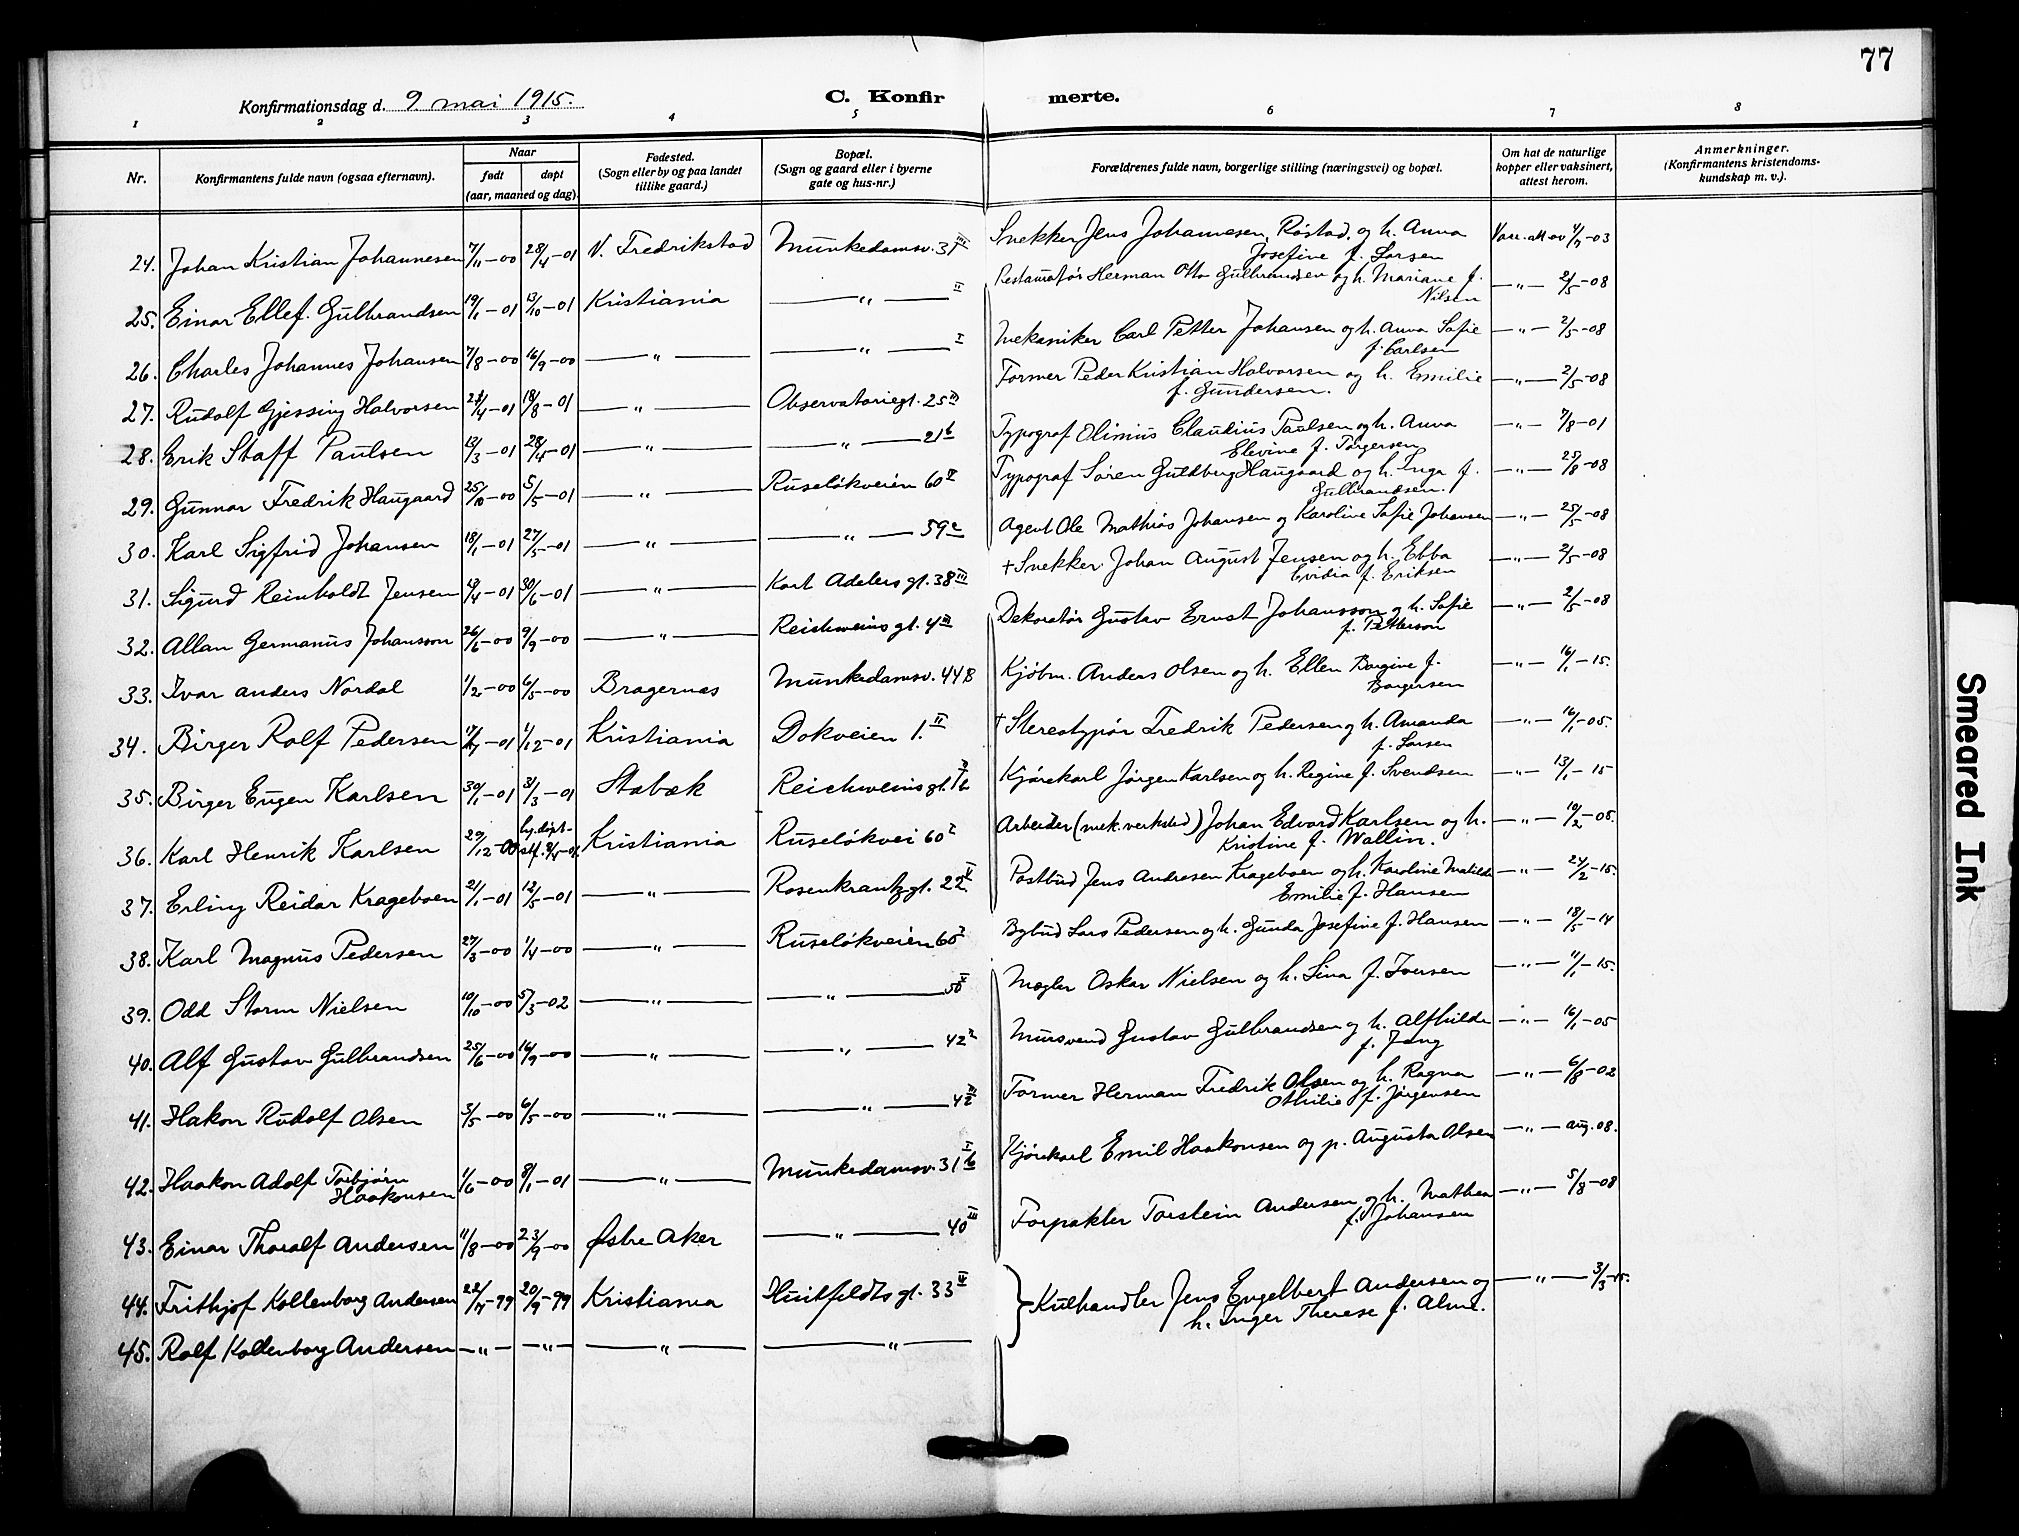 77
Konfirmationsdag d. 9 mai 1915.
C. Konfirmerte.
1 2 3 4 5 6 7 8
Nr. Konfirmantens fulde navn (ogsaa efternavn). Naar født døpt (aar, maaned og dag). Fødested. (Sogn eller by og paa landet tillike gaard.) Bopæl. (Sogn og gaard eller i byerne gate og hus-nr.) Forældrenes fulde navn, borgerlige stilling (næringsvei) og bopæl. Om hat de naturlige kopper eller vaksinert, attest herom. Anmerkninger. (Konfirmantens kristendomskundskap m. v.).
24. Johan Kristian Johannesen 7/11-00 28/4-01 V. Fredrikstad Munkedamsv. 31 III Snekker Jens Johannesen, Røstad, og h. Anna Josefine f. Larsen 4/7-03
25. Einar Ellef. Gulbrandsen 19/1-01 13/10-01 Kristiania —„— II Restauratør Herman Otto Gulbrandsen og h. Mariane f. Nilsen —„— 2/5-08
26. Charles Johannes Johansen 7/8-00 16/9-00 —„— —„— I Mekaniker Carl Petter Johansen og h. Anna Sofie f. Carlsen —„— 2/5-08
27. Rudolf Gjessing Halvorsen 24/4-01 18/8-01 —„— Observatoriegt. 25 III Former Peder Kristian Halvorsen og h. Emilie f. Gundersen. —„— 2/5-08
28. Erik Staff Paulsen 13/3-01 28/4-01 —„— —„— 21 b Typograf Olinius Claudius Paulsen og h. Anna Elevine f. Torgersen —„— 7/8-01
29. Gunnar Fredrik Haugaard 25/10-00 5/5-01 —„— Ruseløkveien 60 II Typograf Søren Guldberg Haugaard og h. Inga f. Gulbrandsen. —„— 25/8-08
30. Karl Sigfrid Johansen 18/1-01 27/5-01 —„— —„— 59 c Agent Ole Mathias Johansen og Karoline Sofie Johansen —„— 25/5-08
31. Sigurd Reinholdt Jensen 19/4-01 30/6-01 —„— Kort Adelersgt. 38 III † Snekker Johan August Jensen og h. Ebba Evidia f. Eriksen —„— 2/5-08
32. Allan Germanus Johansson 26/6-00 9/9-00 —„— Reichweinsgt. 4 III Dekoratør Gustav Ernst Johansson og h. Sofie f. Petterson —„— 2/5-08
33. Ivar Anders Nordal 1/2-00 6/5-00 Bragernæs Munkedamsv. 44 B Kjøbm. Anders Olsen og h. Ellen Borgine f. Borgersen —„— 16/1-15.
34. Birger Rolf Pedersen 1/12-01 Kristiania Dokveien 1. II † Stereotypør Fredrik Pedersen og h. Amanda f. Larsen —„— 16/1-05.
35. Birger Eugen Karlsen 30/1-01 31/3-01 Stabæk Reichweinsgt. Kjørekarl Jørgen Karlsen og h. Regine f. Svendsen —„— 13/1-15
36. Karl Henrik Karlsen 29/12-00 hj.døpt Kristiania Ruseløkvei 60 I Arbeider (mek. verksted) Johan Edvard Karlsen og h. Kristine f. Wallin. —„— 10/2-05.
37. Erling Reidar Krageboen 21/1-01 12/5-01 —„— Rosenkrantzgt. 22 V Postbud Jens Andresen Krageboen og h. Karoline Matilde Emilie f. Hansen —„— 24/2-15.
38. Karl Magnus Pedersen 27/3-00 1/4-00 —„— Ruseløkveien 60 I Bybud Lars Pedersen og h. Gunda Josefine f. Hansen —„— 18/5-14
39. Odd Storm Nielsen 10/10-00 5/3-02 —„— —„— 50 V Mægler Oskar Nielsen og h. Lina f. Iversen —„— 11/1-15.
40. Alf Gustav Gulbrandsen 25/6-00 16/9-00 —„— —„— 42 2 Mursvend Gustav Gulbrandsen og h. Alfhilda f. Jang —„— 16/1-05
41. Hakon Rudolf Olsen 3/5-00 6/5-00 —„— —„— 42 IV Former Herman Fredrik Olsen og h. Ragna Othilie f. Jørgensen —„— 6/8-02
42. Haakon Adolf Torbjørn Haakonsen 1/6-00 8/1-01 —„— Munkedamsv. 31 b I Kjørekarl Emil Haakonsen og p. Augusta Olsen —„— aug. 08.
43. Einar Thoralf Andersen 11/8-00 23/9-00 Østre Aker —„— 40 III Forpakter Torstein Andersen og h. Mathea f. Johansen —„— 5/8-08
44. Frithjof Kollenborg Andersen 22/7-99 20/9-99 Kristiania Huitfeldtsgt. 33 II } Kulhandler Jens Engelbert Andersen og h. Inger Therese f. Alme. —„— 3/3-15.
45. Rolf Kollenborg Andersen —„— —„— —„— —„—
Smeared Ink